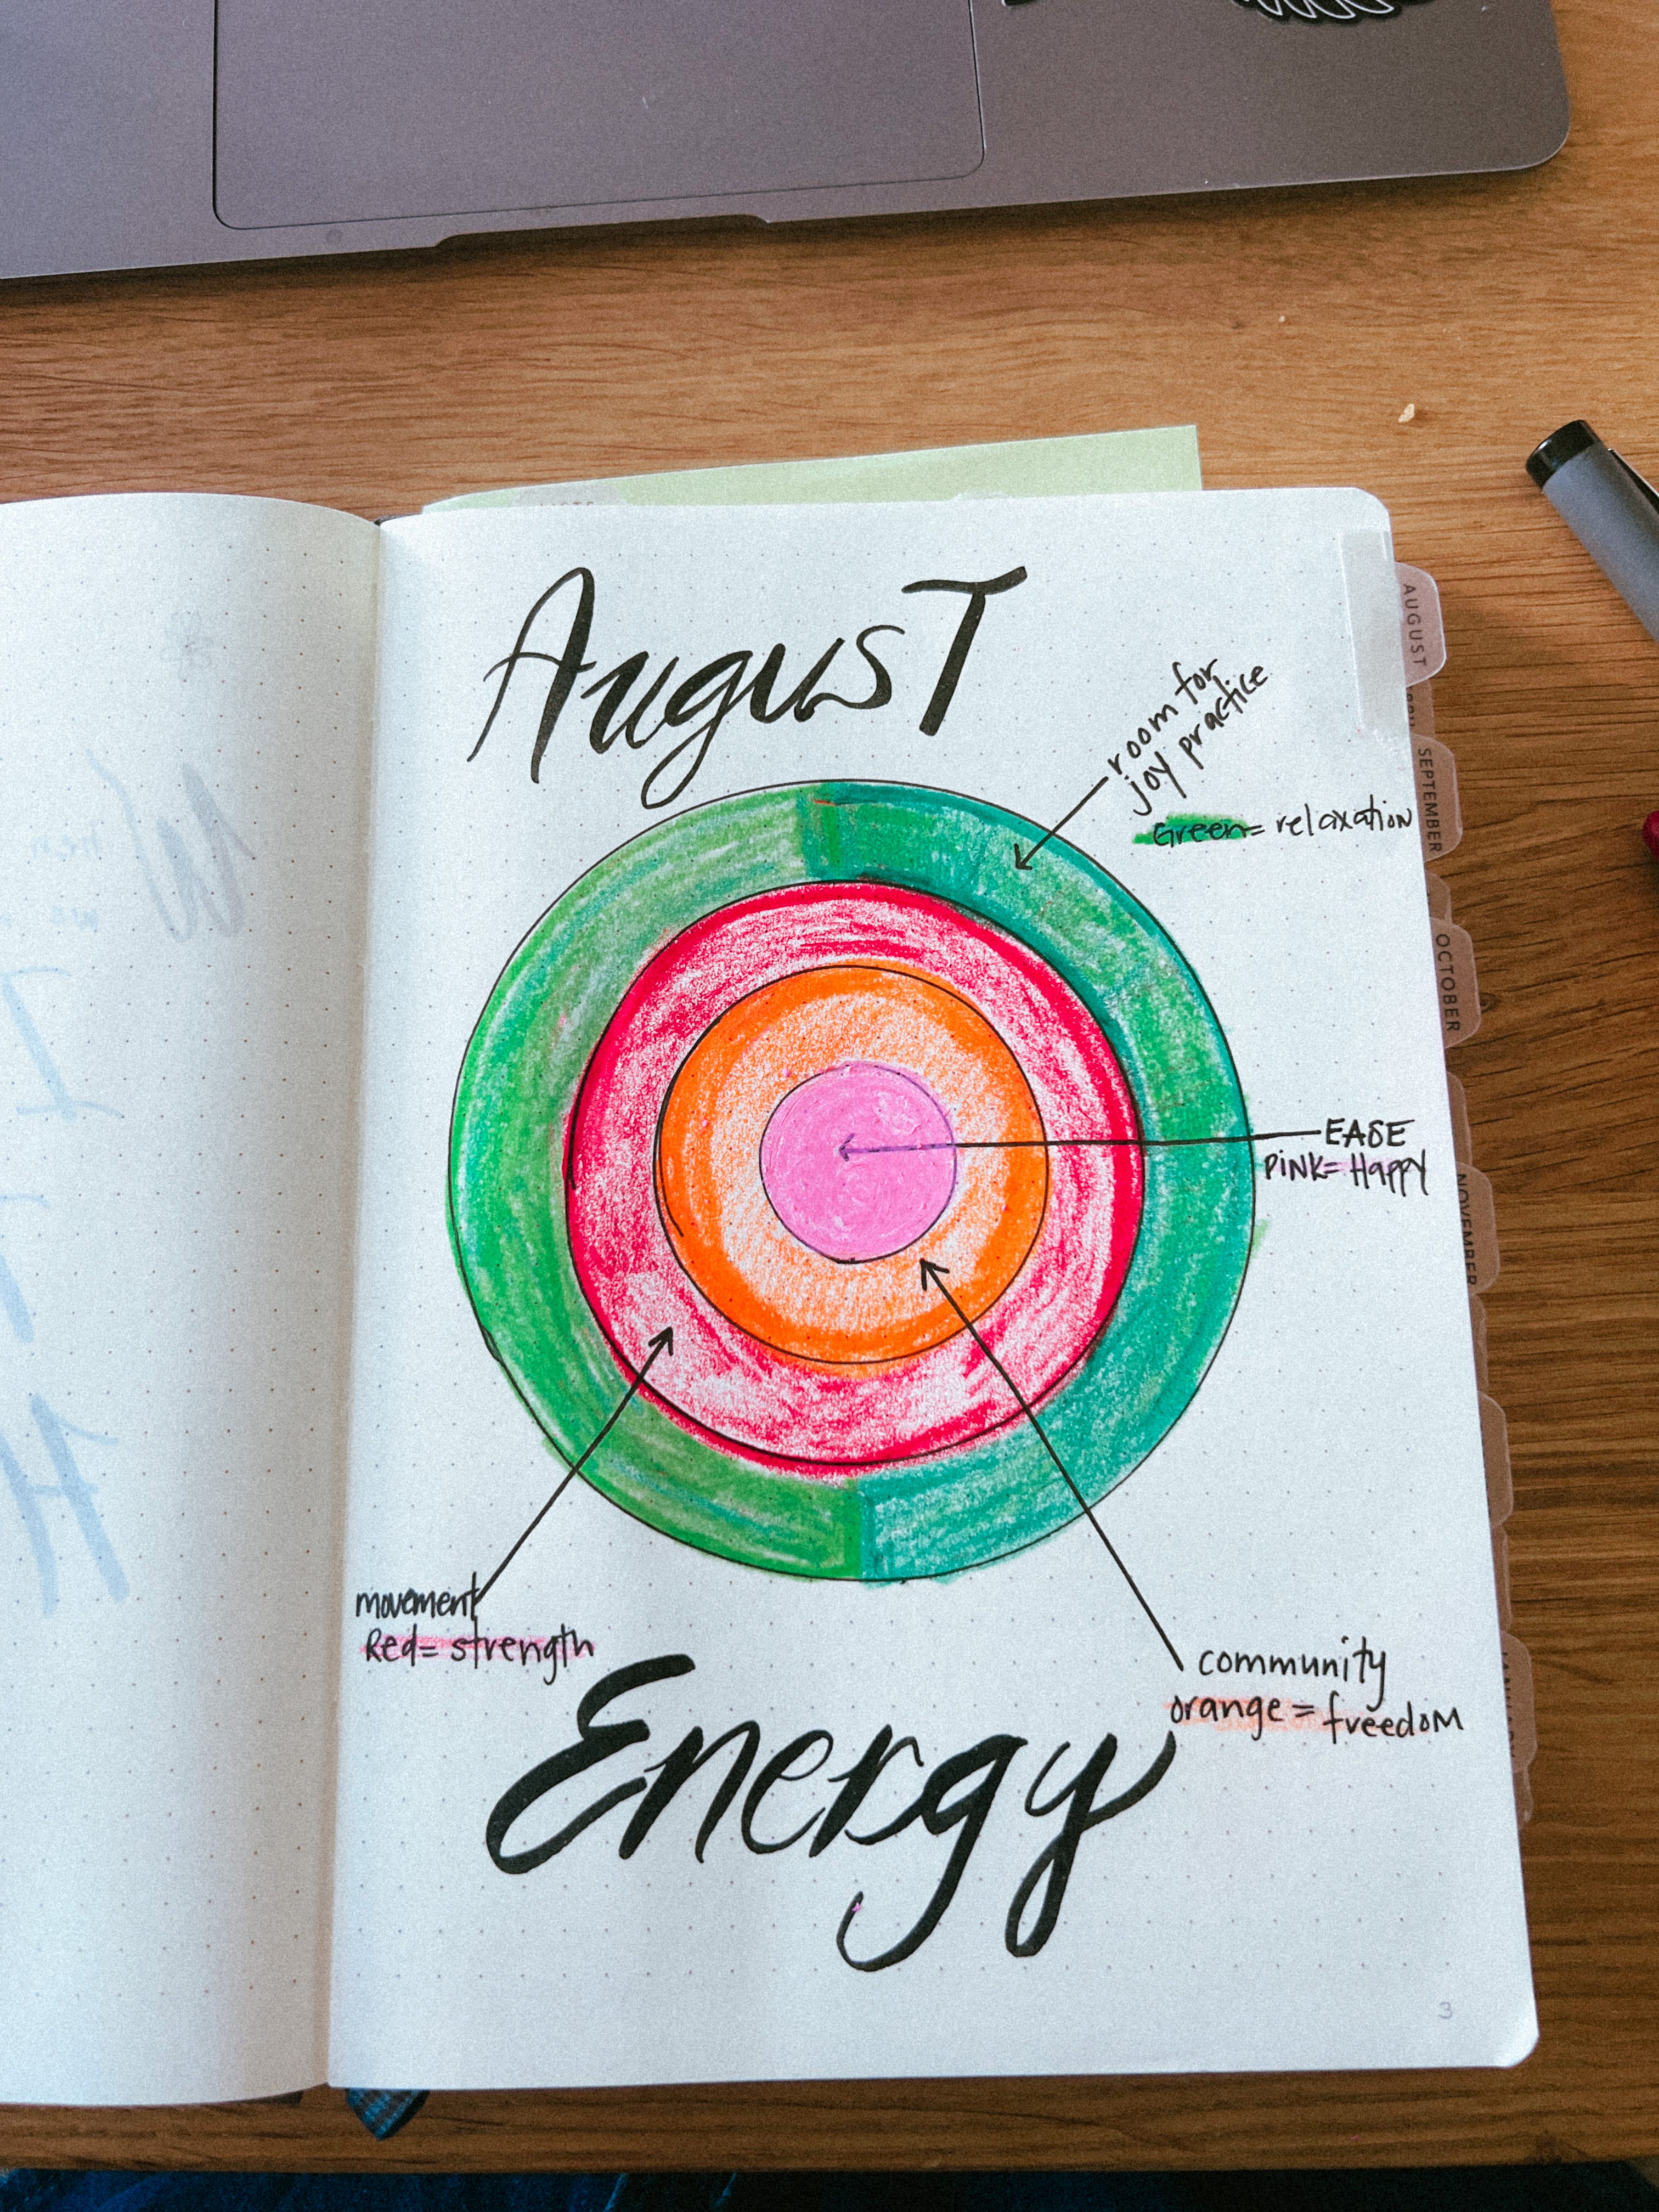 August
room for
joy practice
Green= relaxation
EASE
PINK= Happy
movement
Red= strength
community
orange = freedom
Energy
3
AUGUST
SEPTEMBER
OCTOBER
NOVEMBER
JANUARY